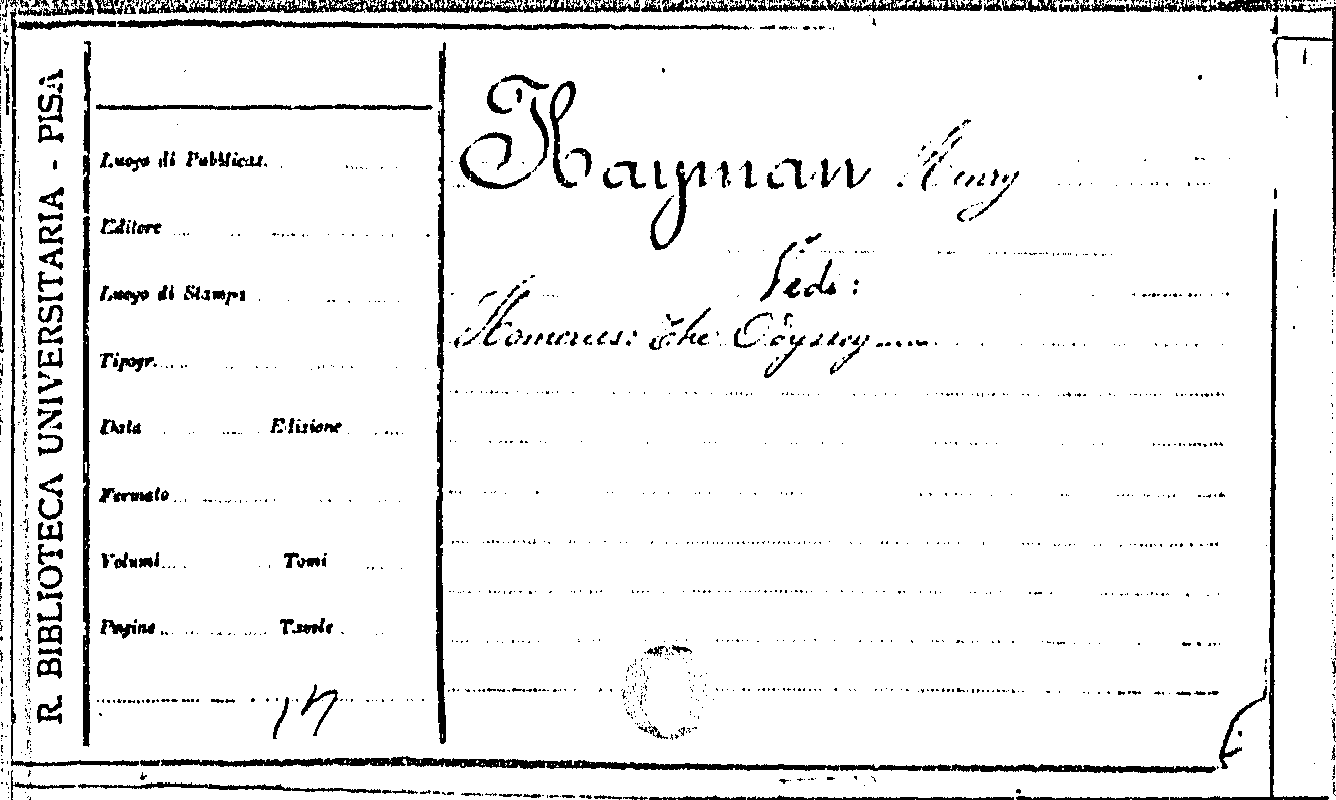 R. BIBLIOTECA UNIVERSITARIA - PISA
Luogo di Pubblicaz.
Editore
Luogo di Stampa
Tipogr.
Data Edizione
Formato
Volumi Tomi
Pagine Tavole
Hayman Henry
Vedi:
Homerus: The Odyssey